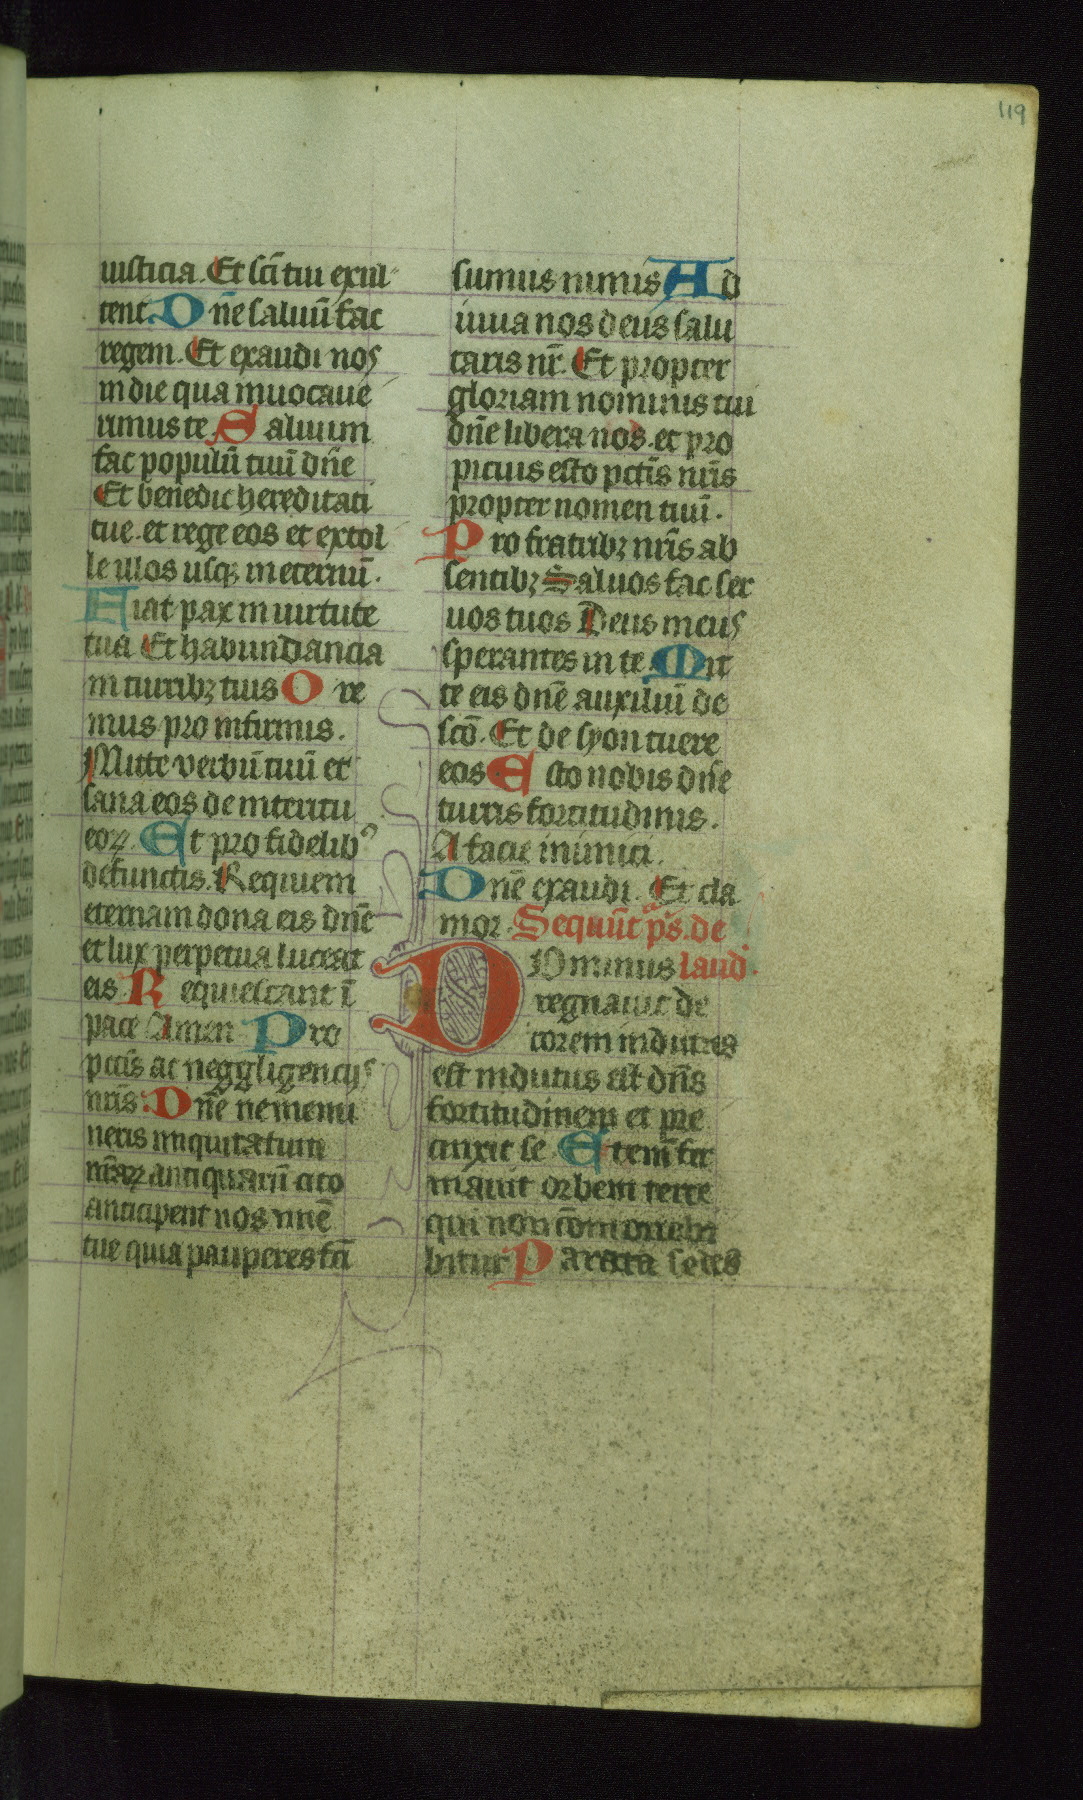 119
iusticia. Et scĩ tui exul-
tent. Dñe saluũ fac
regem. Et exaudi nos
in die qua inuocaue
rimus te. Saluum
fac populũ tuũ dñe
Et benedic hereditati
tue. et rege eos et extol
le illos usq; in eternũ.
Fiat pax in uirtute
tua Et habundancia
in turribꝫ tuis Ore
mus pro infirmis.
Mitte verbũ tuũ et
sana eos de interitu
eoꝝ. Et pro fidelibꝰ
defunctis. Requiem
eternam dona eis dñe
et lux perpetua luceat
eis. Requiescant ĩ
pace Amen Pro
pctĩs ac neggligencijs
nr̃is. Dñe ne memi
neris iniquitatum
nr̃aꝝ antiquarũ cito
anticipent nos mie
tue quia pauperes fcĩ
sumus nimis Ad
iuua nos deus salu
taris nr̃. Et propter
gloriam nominis tui
dñe libera nos. et pro
picius esto pctĩs nr̃is
propter nomen tuũ.
Pro fratribꝫ nr̃is ab
sentibꝫ Saluos fac ser
uos tuos Deus meus
sperantes in te. Mit
te eis dñe auxiliũ de
scõ. Et de syon tuere
eos Esto nobis dñe
turris fortitudinis.
A facie inimici.
Dñe exaudi. Et cla
mor. Sequũt pˢ. de
Dominus laud.
regnauit de
corem indutus
est indutus est dñs
fortitudinem et pre
cinxit se Etenĩ fir
mauit orbem terre
qui non cõmoueb
bitur Parata sedes